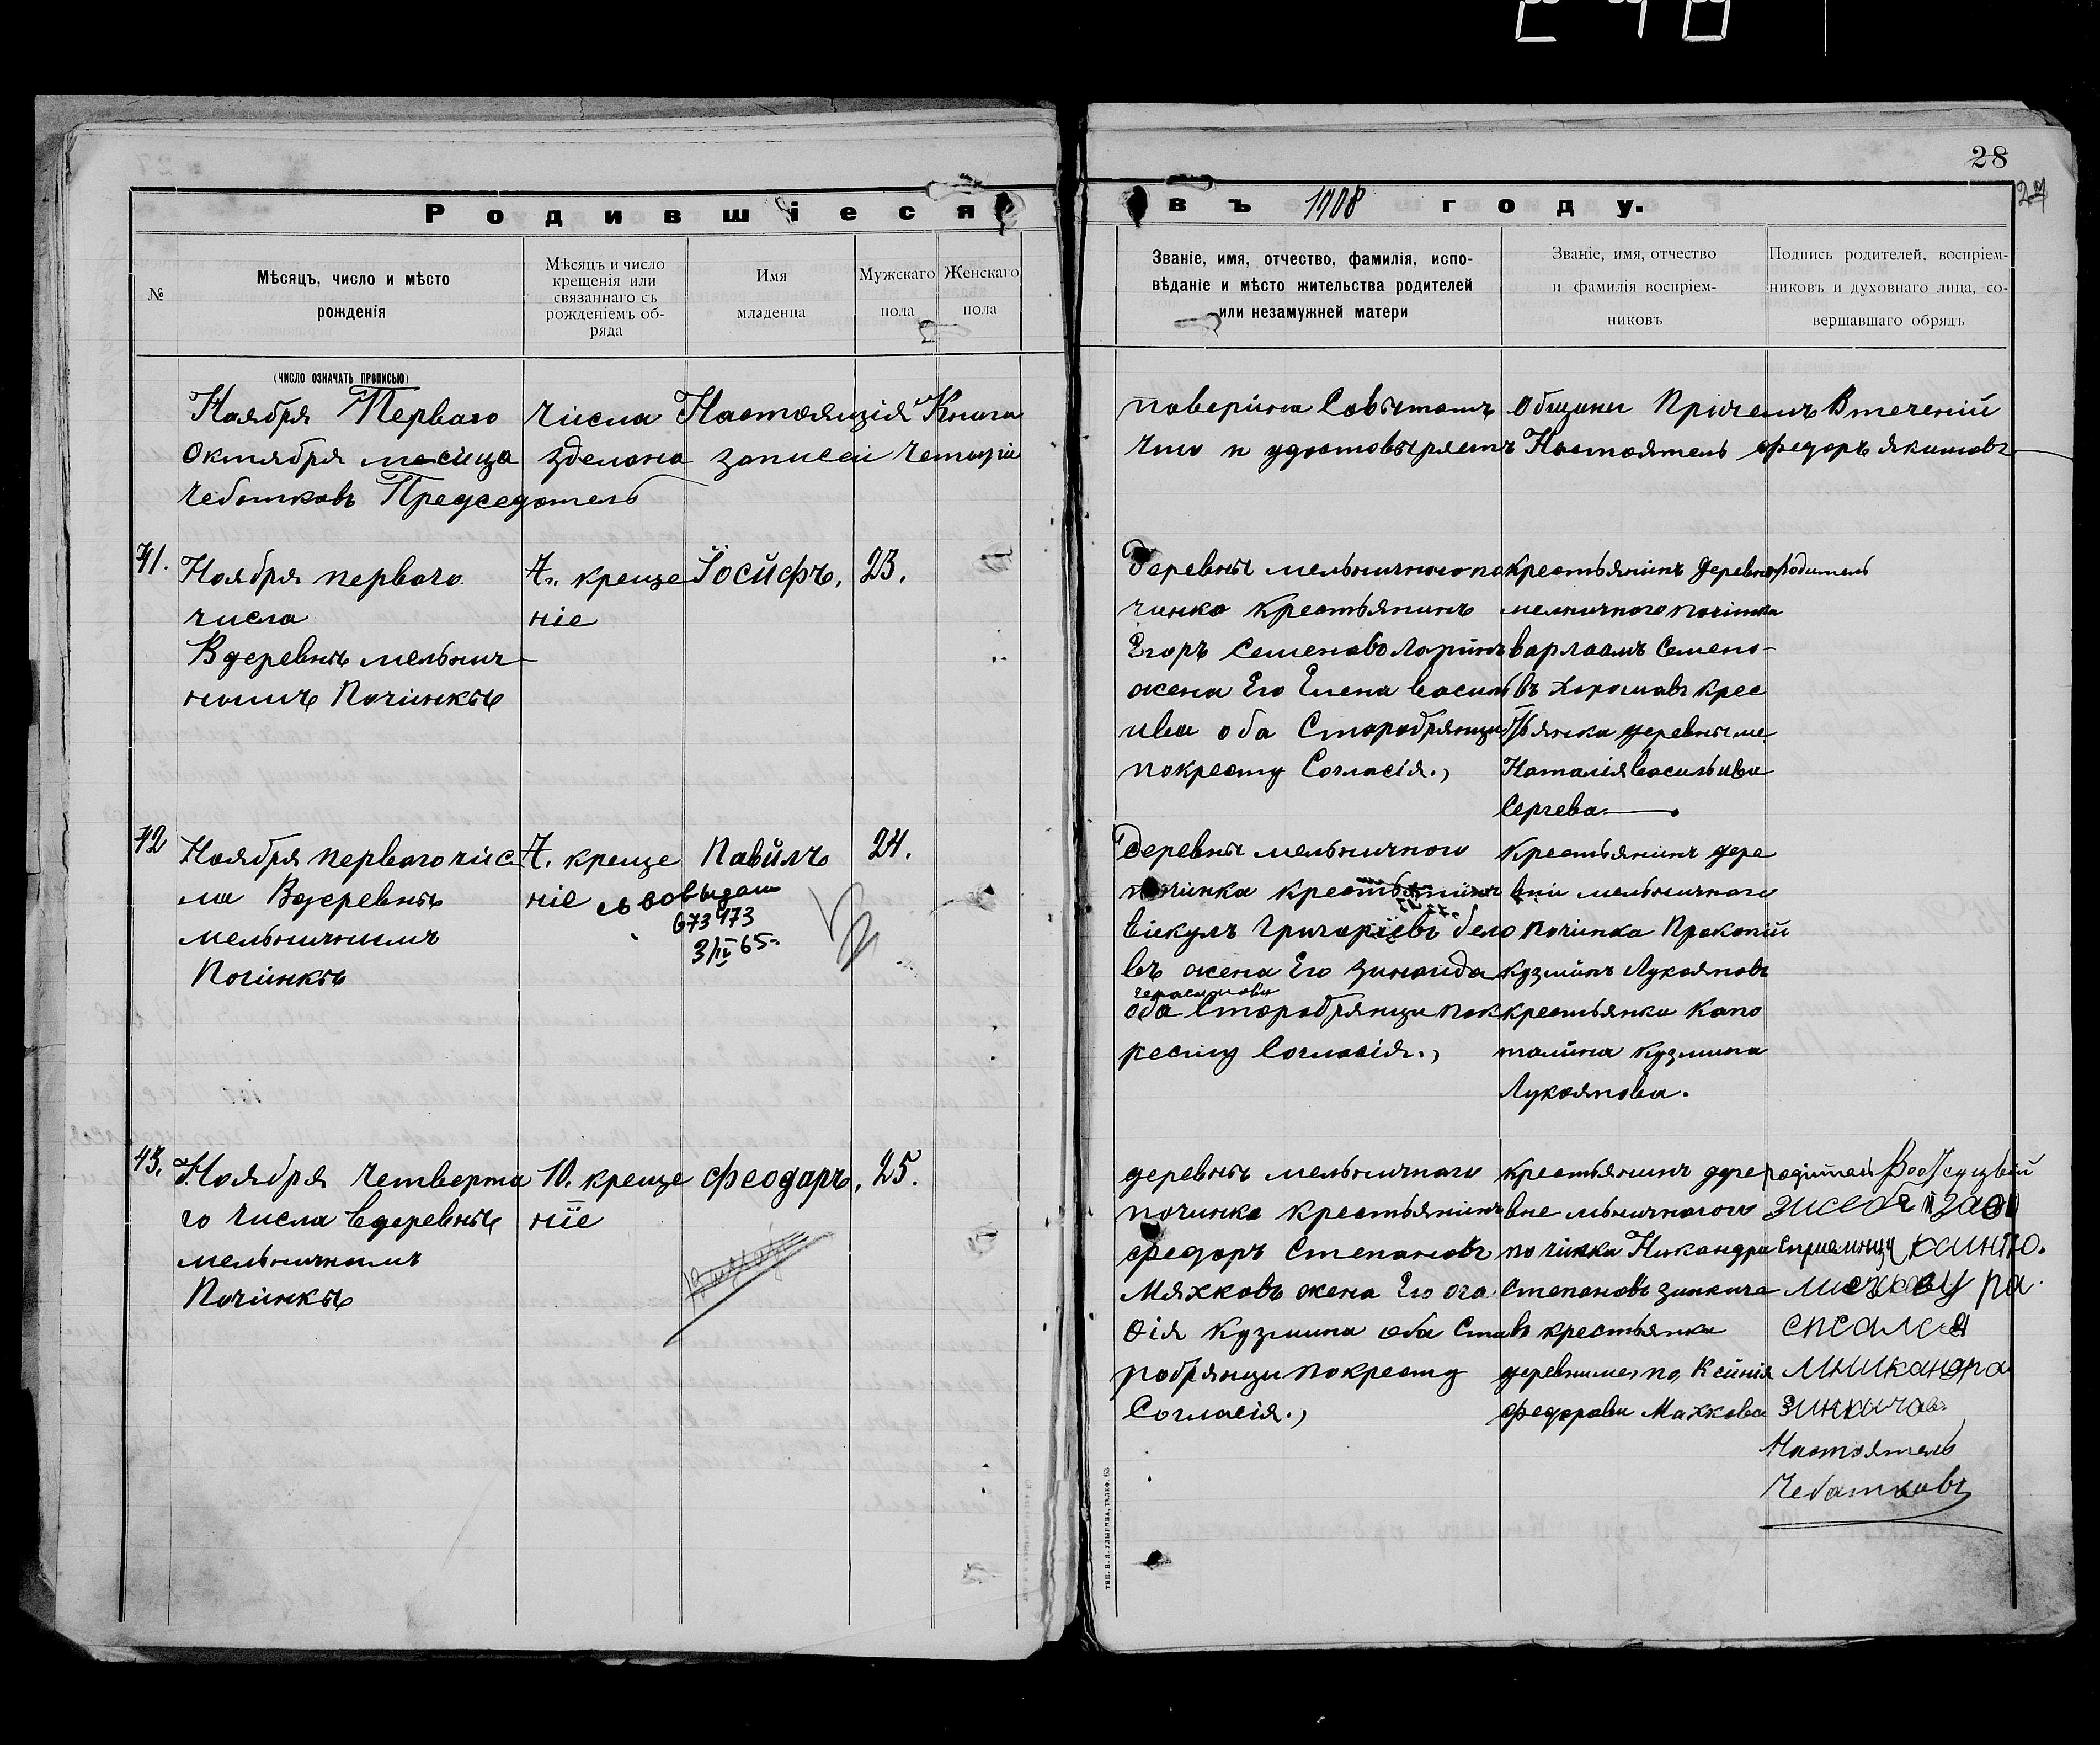 28
27
Родившіеся
въ 1908 году.
№
Мѣсяцъ, число и мѣсто
рожденія
Мѣсяцъ и число
крещенія или
связаннаго съ
рожденіемъ об-
ряда
Имя
младенца
Мужскаго
пола
Женскаго
пола
Званіе, имя, отчество, фамилія, испо-
вѣданіе и мѣсто жительства родителей
или незамужней матери
Званіе, имя, отчество
и фамилія воспріем-
никовъ
Подпись родителей, воспріем-
никовъ и духовнаго лица, со-
вершавшаго обрядъ
(число означать прописью)
Ноября Перваго числа Настоящія Книга
поверина Совѣтомъ Общины Причемъ Втеченій
Октября месица зделона записей Четыри
Что и удостовѣряетъ Настоятель Федоръ Якимовъ
Чеботковъ Председатель
41.
Ноября перваго
числа
Вдеревнѣ мельнич
номъ Починкѣ
7. креще
ніе
Іосифъ,
23.
Деревнѣ мельничного по
чинка крестьянинъ
Егоръ Семеновъ Ларинъ
жена Его Елена Василь
ива оба Старобрянцы
покресту Согласія.,
крестьянинъ деревнѣ
мелничного починка
варлаамъ Семено-
въ Хорошавъ крес
тьянка деревни ме
Наталія Васильива
Сергева
Родитель
42
Ноября перваго чис
ла Вдеревнѣ
мельничнимъ
Починкѣ
7. креще
ніе
Павилъ
24.
св во выдан
673473
3/IV 65.
Деревнѣ мельничного
починка крестьянинъ
вікулъ Григоріевъ бело
въ жена Его Зинаида
герасимова
оба Старобрянци пок
ресту Согласія.,
Крестьянинъ дере
вни мельничнаго
починка Прокопій
кузминъ Лукояновъ
крестьянка Капо
толина Кузмина
Лукоянова.
43.
Ноября Четверта
го числа Вдеревнѣ
мельничнимъ
Починкѣ
10. креще
ніе
Феодаръ,
25.
деревнѣ мельничнаго
починка крестьянинъ
Федоръ Степановъ
Мяхковъ жена Его ага
ѳія Кузмина оба Ста
робрянци покресту
Согласія.,
крестьянинъ дере
вне мьничного
починка Никандра
Степановъ зинкиче
въ крестьянка
деревни ме, по, Ксинія
Федорова Махкова
Никандра
Зинкичавъ
Настоятель
Чебатковъ